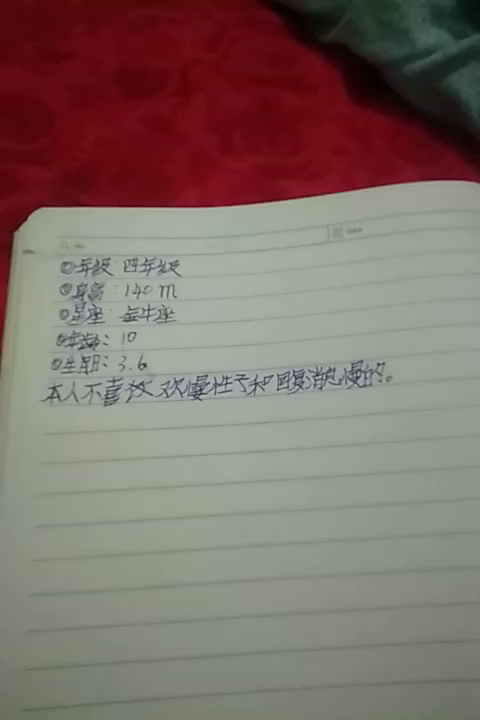 ①年级:四年级
②身高:140m
③星座:金牛座
④年龄:10
⑤生日:3.6
本人不喜欢欢慢性子和回复消息慢的。